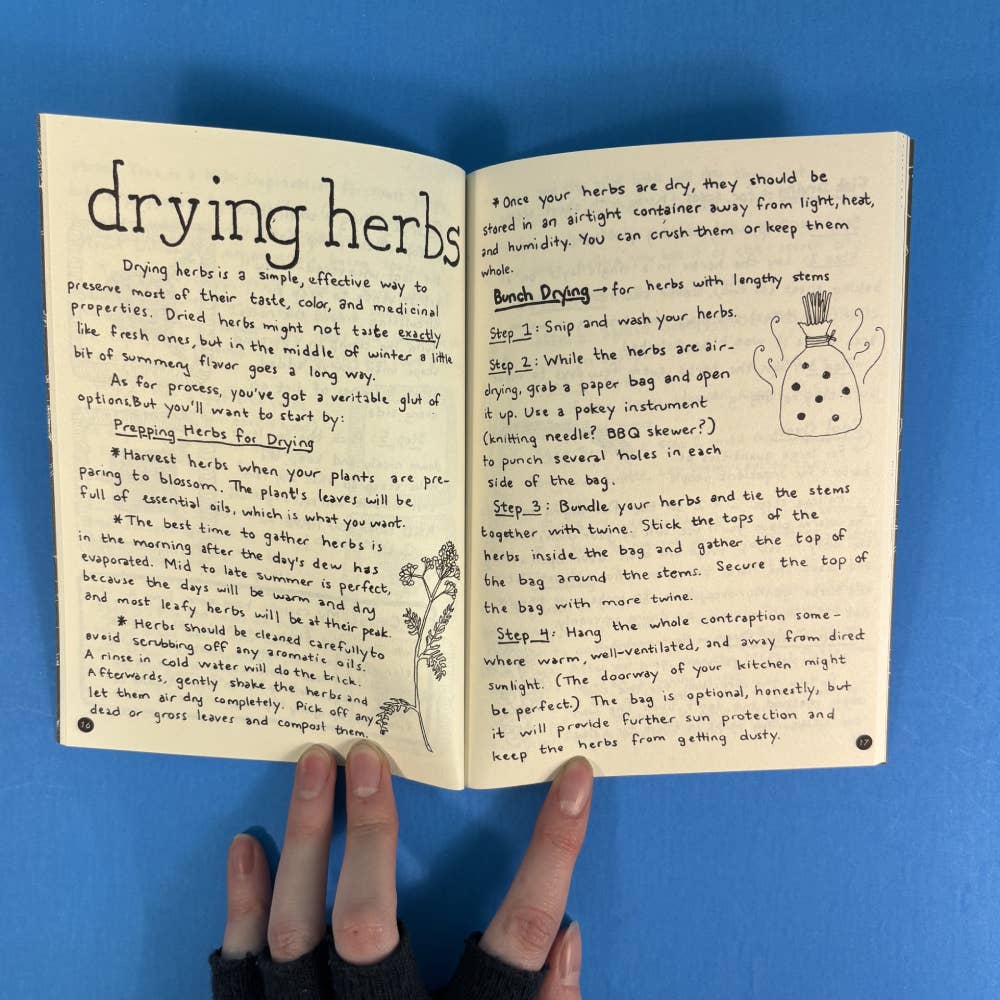 drying herbs
Drying herbs is a simple, effective way to
preserve most of their taste, color, and medicinal
properties. Dried herbs might not taste exactly
like fresh ones, but in the middle of winter a little
bit of summery flavor goes a long way.
As for process, you've got a veritable glut of
options. But you'll want to start by:
Prepping Herbs for Drying
*Harvest herbs when your plants are pre-
paring to blossom. The plant's leaves will be
full of essential oils, which is what you want.
*The best time to gather herbs is
in the morning after the day's dew has
evaporated. Mid to late summer is perfect,
because the days will be warm and dry
and most leafy herbs will be at their peak.
* Herbs should be cleaned carefully to
avoid scrubbing off any aromatic oils.
A rinse in cold water will do the trick.
Afterwards, gently shake the herbs and
let them air dry completely. Pick off any
dead or gross leaves and compost them.
16
*Once your herbs are dry, they should be
stored in an airtight container away from light, heat,
and humidity. You can crush them or keep them
whole.
Bunch Drying → for herbs with lengthy stems
Step 1: Snip and wash your herbs.
Step 2: While the herbs are air-
drying, grab a paper bag and open
it up. Use a pokey instrument
(knitting needle? BBQ skewer?)
to punch several holes in each
side of the bag.
Step 3: Bundle your herbs and tie the stems
together with twine. Stick the tops of the
herbs inside the bag and gather the top of
the bag around the stems. Secure the top of
the bag with more twine.
Step 4: Hang the whole contraption some-
where warm, well-ventilated, and away from direct
sunlight. (The doorway of your kitchen might
be perfect.) The bag is optional, honestly, but
it will provide further sun protection and
keep the herbs from getting dusty.
17